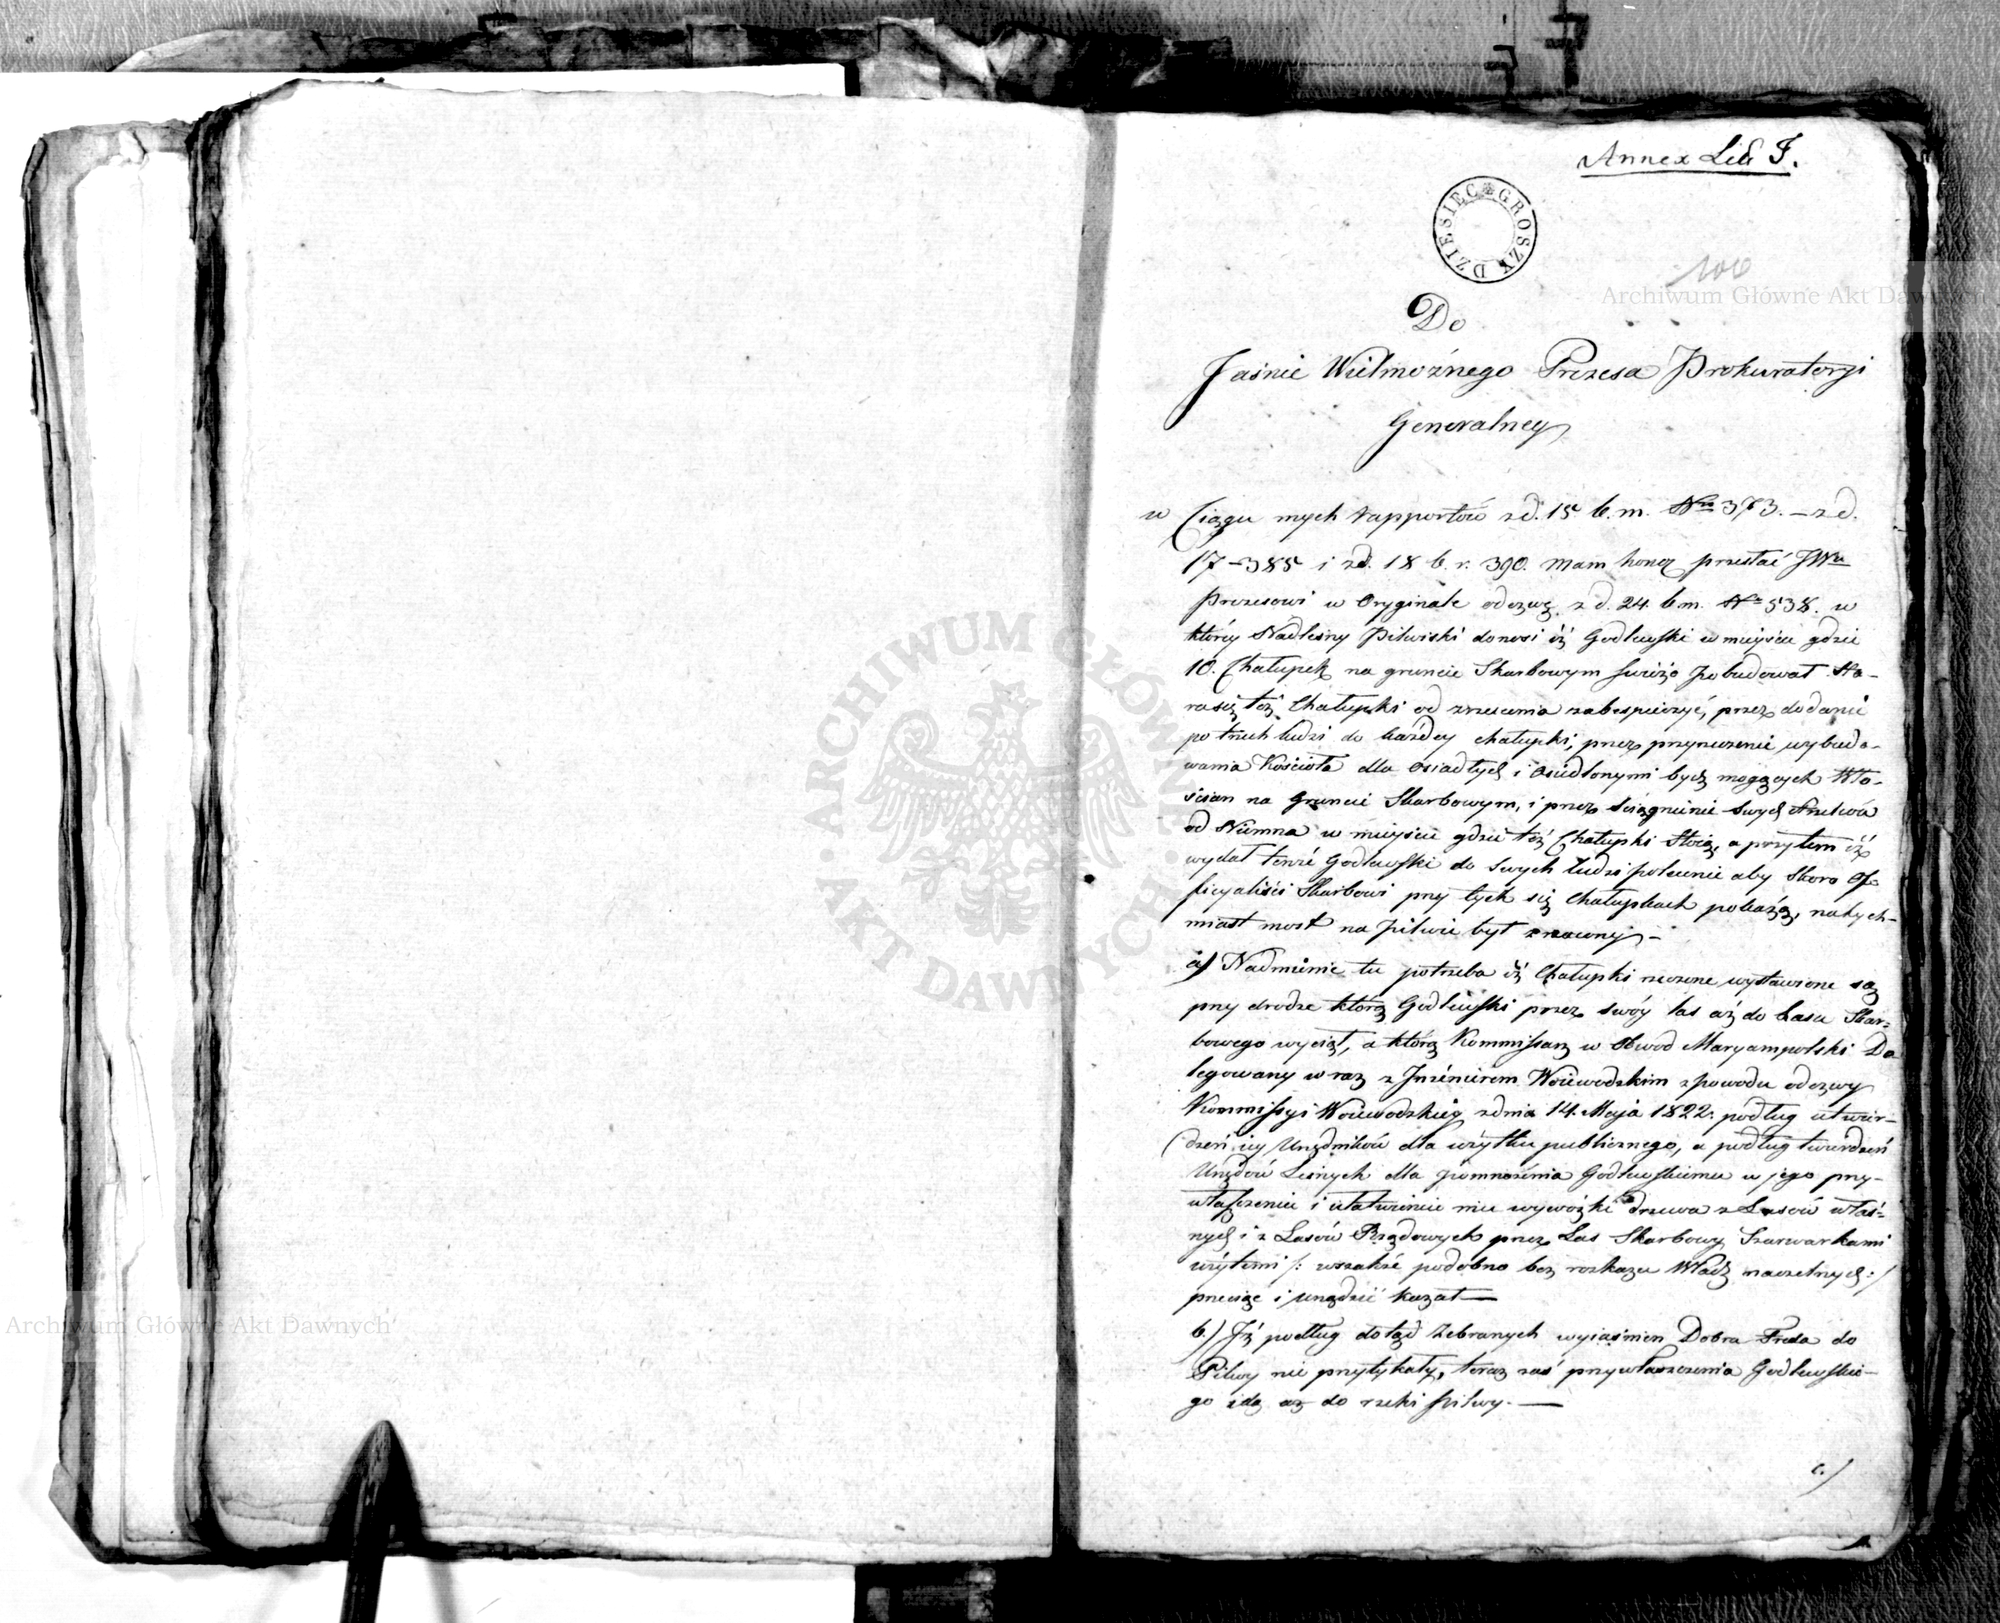 Annex Lit J.
DZIESIĘC GROSZY
100
Do
Jaśnie Wielmożnego Prezesa Prokuratoryi
Generalney
w Ciągu mych rapportów z d. 15 b. m. Nro 373. – z d.
17 – 385 i z d. 18 b. r. 390. mam honor przesłać JWu
Prezesowi w Oryginale odezwę z d. 24. b. m. Nro 538. w
którey Nadleśny Pilwiski donosi iż Godlewski w mieyscu gdzie
10. Chałupek na gruncie Skarbowym świeżo pobudował sta-
ra się też Chałupki od zniesienia zabespieczyć, przez dodanie
po trzech ludzi do każdey chałupki, przez przynuzenie wybudo-
wania Kościoła dla osiadłych i osiedlonymi bydź mogących Wło-
ścian na Gruncie Skarbowym, i przez ściągnienie swych
od Niemna w mieysce gdzie też Chałupki stoią, a przytem iż
wydał tenże Godlewski do swych ludzi polecenie aby skoro Of-
ficyaliści Skarbowi przy tych się Chałupkach pokażą, natych-
miast most na Pilwie był zerwany –
a) Nadmienić tu potrzeba iż Chałupki rzeczone wystawione są
przy drodze którą Godlewski przez swóy las aż do Lasu Skar-
bowego wyciął, a którą Kommissarz w Obwód Maryampolski De
legowany wraz z Inżenierem Woiewodzkim z powodu odezwy
Kommissyi Woiewodzkiey z dnia 14. Maja 1822. podług utwier-
dzeń icy Urzędników dla użytku publicznego, a podług twierdzeń
Urzędów Leśnych dla pomnożenia Godlewskiemu w jego przy-
właszczeniu i ułatwieniu mu wywózki drzewa z Lasów włas-
nych i z Lasów Rządowych przez Las Skarbowy Szarwarkami
użytemi /: wszakże podobno bez rozkazu Władz naczelnych :/
przeciąć i urządzić kazał —
b.) Iż podług dotąd zebranych wyiaśnien Dobra Freda do
Pilwy nie przytykały, teraz zaś przywłaszczenia Godlewskie-
go idą aż do rzeki Pilwy. —
c.)
Archiwum Główne Akt Dawnych
Archiwum Główne Akt Dawnych
ARCHIWUM GŁÓWNE · AKT DAWNYCH ·